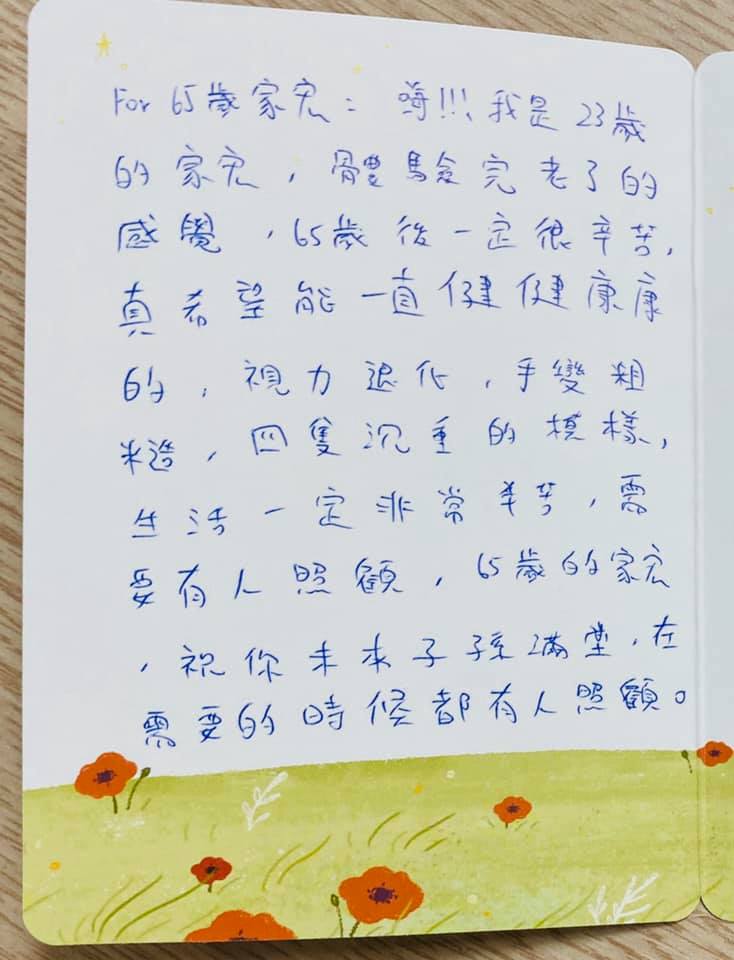 For 65歲家宏：嗨!!!我是23歲
的家宏，體驗完老了的
感覺，65歲後一定很辛苦，
真希望能一直健健康康
的，視力退化，手變粗
糙，四隻沉重的模樣，
生活一定非常辛苦，需
要有人照顧，65歲的家宏
，祝你未來子孫滿堂，在
需要的時候都有人照顧。